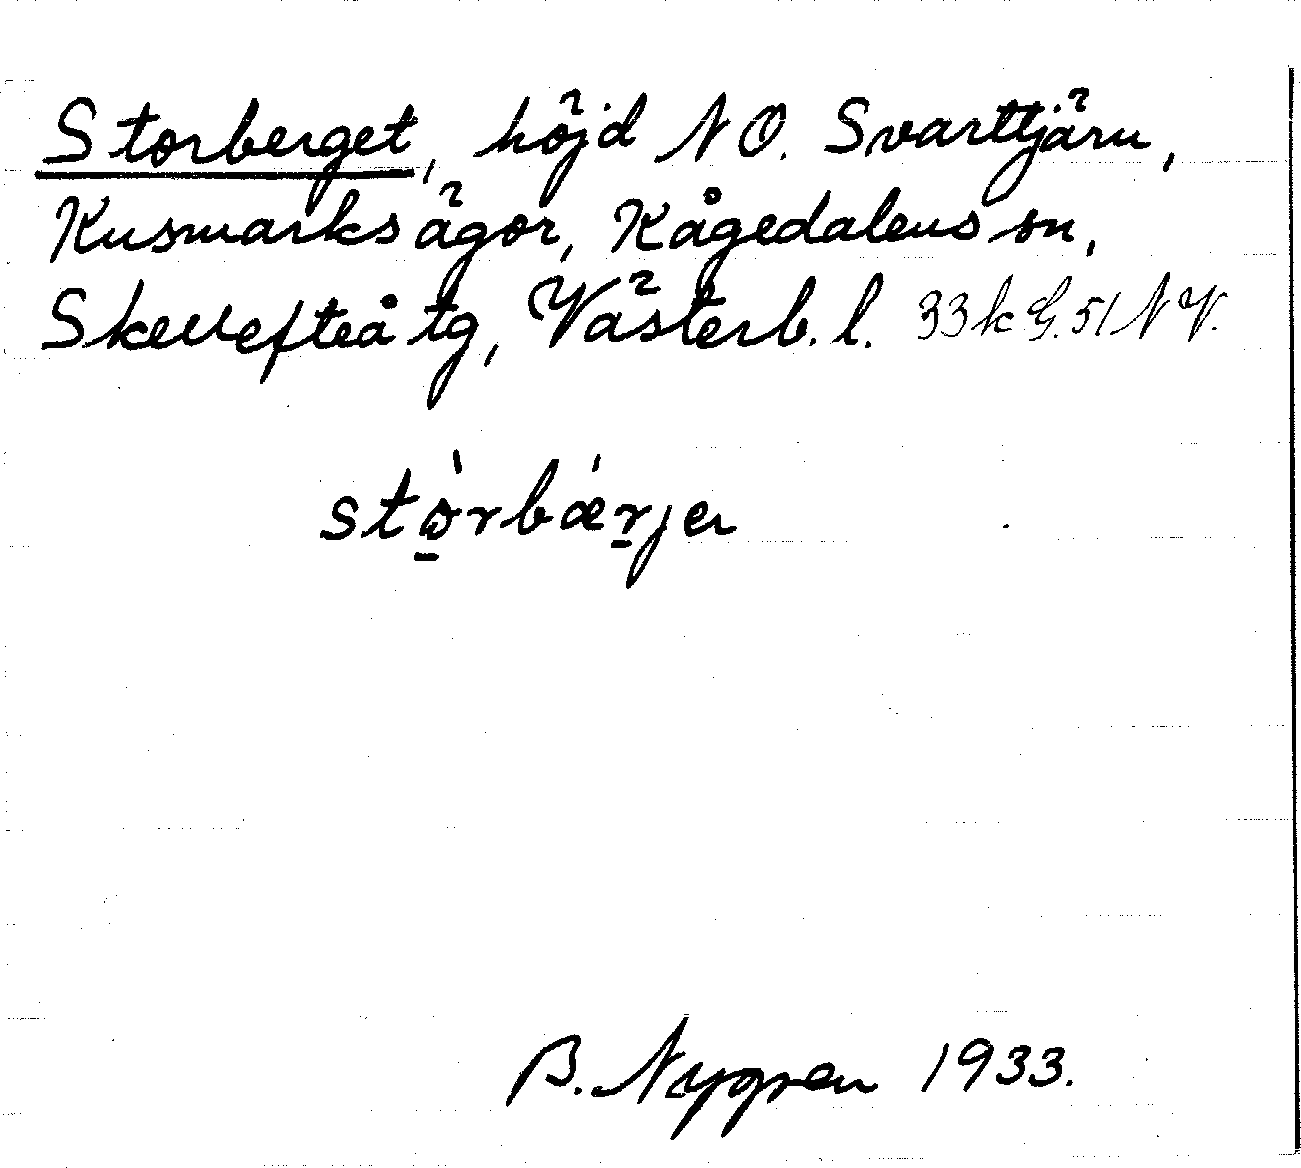 Storberget, höjd NO. Svarttjärn,
Kusmarks ägor, Kågedalens sn,
Skellefteå tg, Västerb. l. 33 k G. 51 NV.
stò̱rbǽṟjer
B. Nygren 1933.